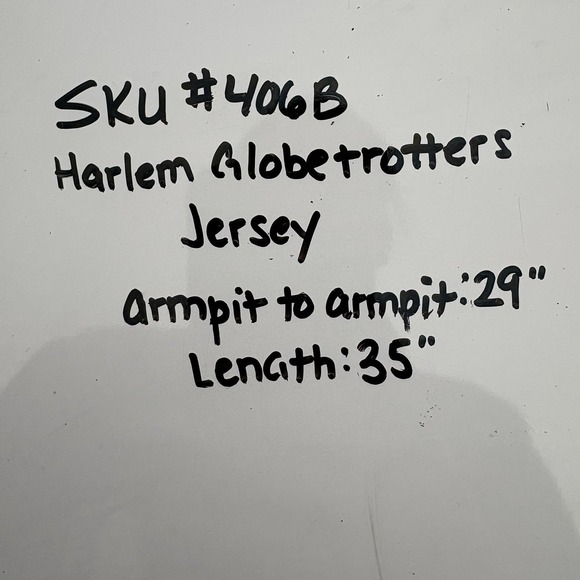 SKU #406B
Harlem Globetrotters
Jersey
armpit to armpit: 29"
Length: 35"